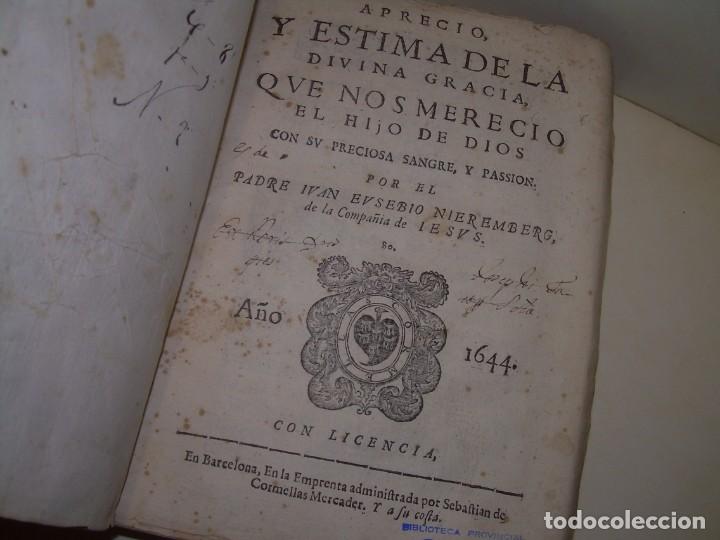 APRECIO,
Y ESTIMA DE LA
DIVINA GRACIA,
QVE NOS MERECIO
EL HIJO DE DIOS
CON SV PRECIOSA SANGRE, Y PASSION.
POR EL
PADRE IVAN EVSEBIO NIEREMBERG,
de la Compañia de IESVS.
es de
80.
Año 1644.
CON LICENCIA,
En Barcelona, En la Emprenta administrada por Sebastian de
Cormellas Mercader. Y a su costa.
BIBLIOTECA PROVINCIAL
todocoleccion